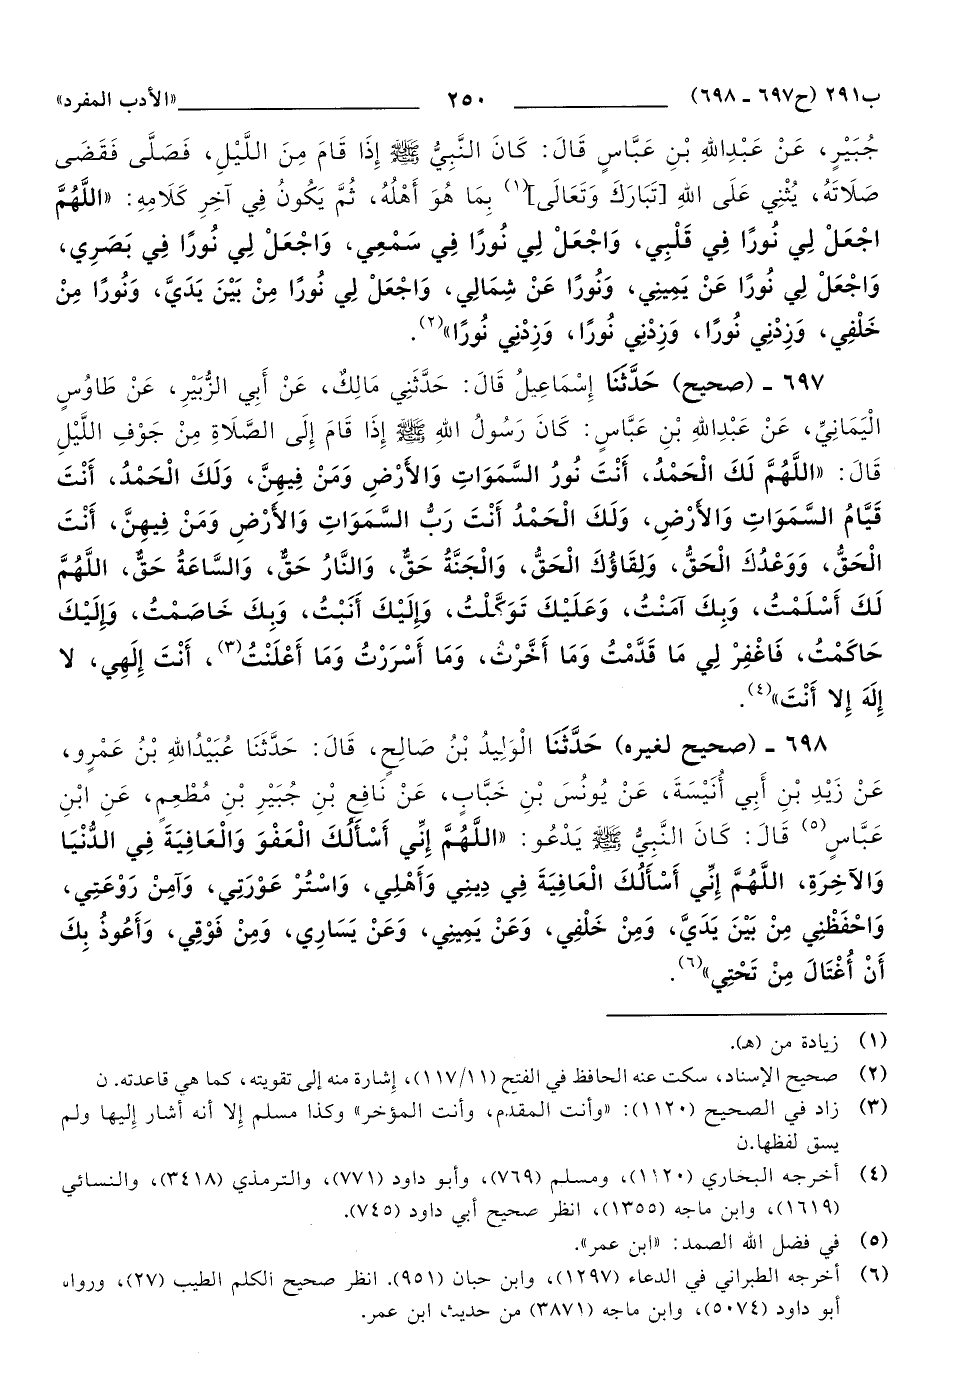 ب٢٩١ (ح٦٩٧ ـ ٦٩٨) ٢٥٠ «الأدب المفرد»
جُبَيْرٍ، عَنْ عَبْدِاللهِ بْنِ عَبَّاسٍ قَالَ: كَانَ النَّبِيُّ ﷺ إِذَا قَامَ مِنَ اللَّيْلِ، فَصَلَّى فَقَضَى
صَلَاتَهُ، يُثْنِي عَلَى اللهِ [تَبَارَكَ وَتَعَالَى](١) بِمَا هُوَ أَهْلُهُ، ثُمَّ يَكُونُ فِي آخِرِ كَلَامِهِ: «اللَّهُمَّ
اجْعَلْ لِي نُورًا فِي قَلْبِي، وَاجْعَلْ لِي نُورًا فِي سَمْعِي، وَاجْعَلْ لِي نُورًا فِي بَصَرِي،
وَاجْعَلْ لِي نُورًا عَنْ يَمِينِي، وَنُورًا عَنْ شِمَالِي، وَاجْعَلْ لِي نُورًا مِنْ بَيْنَ يَدَيَّ، وَنُورًا مِنْ
خَلْفِي، وَزِدْنِي نُورًا، وَزِدْنِي نُورًا، وَزِدْنِي نُورًا»(٢).
٦٩٧ ـ (صحيح) حَدَّثَنَا إِسْمَاعِيلُ قَالَ: حَدَّثَنِي مَالِكٌ، عَنْ أَبِي الزُّبَيْرِ، عَنْ طَاوُسٍ
الْيَمَانِيِّ، عَنْ عَبْدِاللهِ بْنِ عَبَّاسٍ: كَانَ رَسُولُ اللهِ ﷺ إِذَا قَامَ إِلَى الصَّلَاةِ مِنْ جَوْفِ اللَّيْلِ
قَالَ: «اللَّهُمَّ لَكَ الْحَمْدُ، أَنْتَ نُورُ السَّمَوَاتِ وَالأَرْضِ وَمَنْ فِيهِنَّ، وَلَكَ الْحَمْدُ، أَنْتَ
قَيَّامُ السَّمَوَاتِ وَالأَرْضِ، وَلَكَ الْحَمْدُ أَنْتَ رَبُّ السَّمَوَاتِ وَالأَرْضِ وَمَنْ فِيهِنَّ، أَنْتَ
الْحَقُّ، وَوَعْدُكَ الْحَقُّ، وَلِقَاؤُكَ الْحَقُّ، وَالْجَنَّةُ حَقٌّ، وَالنَّارُ حَقٌّ، وَالسَّاعَةُ حَقٌّ، اللَّهُمَّ
لَكَ أَسْلَمْتُ، وَبِكَ آمَنْتُ، وَعَلَيْكَ تَوَكَّلْتُ، وَإِلَيْكَ أَنَبْتُ، وَبِكَ خَاصَمْتُ، وَإِلَيْكَ
حَاكَمْتُ، فَاغْفِرْ لِي مَا قَدَّمْتُ وَمَا أَخَّرْتُ، وَمَا أَسْرَرْتُ وَمَا أَعْلَنْتُ(٣)، أَنْتَ إِلَهِي، لا
إِلَهَ إِلا أَنْتَ»(٤).
٦٩٨ ـ (صحيح لغيره) حَدَّثَنَا الْوَلِيدُ بْنُ صَالِحٍ، قَالَ: حَدَّثَنَا عُبَيْدُاللهِ بْنُ عَمْرٍو،
عَنْ زَيْدِ بْنِ أَبِي أُنَيْسَةَ، عَنْ يُونُسَ بْنِ خَبَّابٍ، عَنْ نَافِعِ بْنِ جُبَيْرِ بْنِ مُطْعِمٍ، عَنِ ابْنِ
عَبَّاسٍ(٥) قَالَ: كَانَ النَّبِيُّ ﷺ يَدْعُو: «اللَّهُمَّ إِنِّي أَسْأَلُكَ الْعَفْوَ وَالْعَافِيَةَ فِي الدُّنْيَا
وَالآخِرَةِ، اللَّهُمَّ إِنِّي أَسْأَلُكَ الْعَافِيَةَ فِي دِينِي وَأَهْلِي، وَاسْتُرْ عَوْرَتِي، وَآمِنْ رَوْعَتِي،
وَاحْفَظْنِي مِنْ بَيْنَ يَدَيَّ، وَمِنْ خَلْفِي، وَعَنْ يَمِينِي، وَعَنْ يَسَارِي، وَمِنْ فَوْقِي، وَأَعُوذُ بِكَ
أَنْ أُغْتَالَ مِنْ تَحْتِي»(٦).
(١) زيادة من (هـ).
(٢) صحيح الإسناد، سكت عنه الحافظ في الفتح (١١/ ١١٧)، إشارة منه إلى تقويته، كما هي قاعدته. ن
(٣) زاد في الصحيح (١١٢٠): «وأنت المقدم، وأنت المؤخر» وكذا مسلم إلا أنه أشار إليها ولم
يسق لفظها.ن
(٤) أخرجه البخاري (١١٢٠)، ومسلم (٧٦٩)، وأبو داود (٧٧١)، والترمذي (٣٤١٨)، والنسائي
(١٦١٩)، وابن ماجه (١٣٥٥)، انظر صحيح أبي داود (٧٤٥).
(٥) في فضل الله الصمد: «ابن عمر».
(٦) أخرجه الطبراني في الدعاء (١٢٩٧)، وابن حبان (٩٥١). انظر صحيح الكلم الطيب (٢٧)، ورواه
أبو داود (٥٠٧٤)، وابن ماجه (٣٨٧١) من حديث ابن عمر.